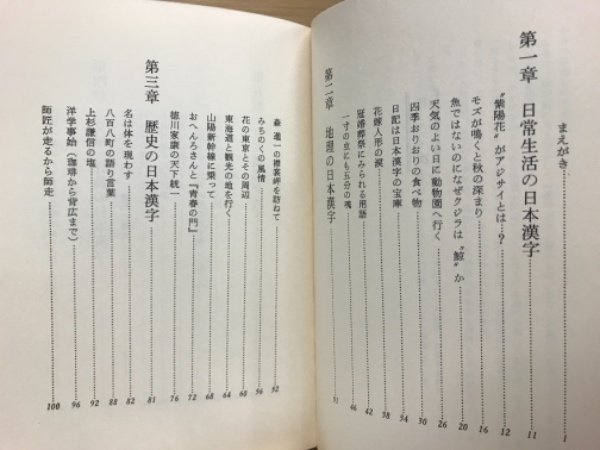 まえがき……1
第一章　日常生活の日本漢字……11
〝紫陽花〟がアジサイとは？……12
モズが鳴くと秋の深まり……16
魚ではないのになぜクジラは〝鯨〟か……20
天気のよい日に動物園へ行く……26
四季おりおりの食べ物……30
日記は日本漢字の宝庫……34
花嫁人形の涙……38
冠婚葬祭にみられる用語……42
一寸の虫にも五分の魂……46
第二章　地理の日本漢字……51
森進一の襟裳岬を訪ねて……52
みちのくの風情……56
花の東京とその周辺……60
東海道と観光の地を行く……64
山陽新幹線に乗って……68
おへんろさんと『青春の門』……72
徳川家康の天下統一……76
第三章　歴史の日本漢字……81
名は体を現わす……82
八百八町の語り言葉……88
上杉謙信の塩……92
洋学事始（珈琲から背広まで）……96
師匠が走るから師走……100